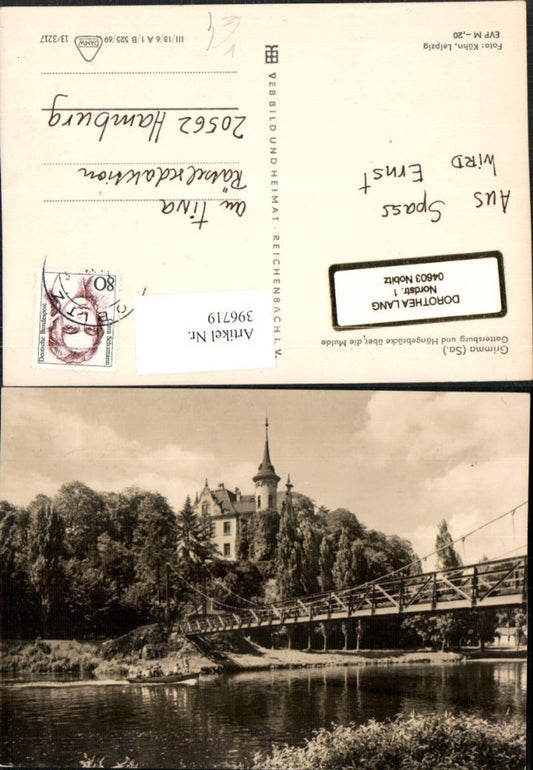 Grimma (Sa.)
Gattersburg und Hängebrücke über die Mulde
DOROTHEA LANG
Nordstr. 1
04603 Nobitz
Aus Spass
WIRD Ernst
Foto: Kühn, Leipzig
EVP M –,20
VEB BILD UND HEIMAT · REICHENBACH I. V.
Artikel Nr.
396719
80
Deutsche Bundespost
an Tina
Rätselredaktion
20562 Hamburg
III/18/6 A 1 B 525/69 13/3217